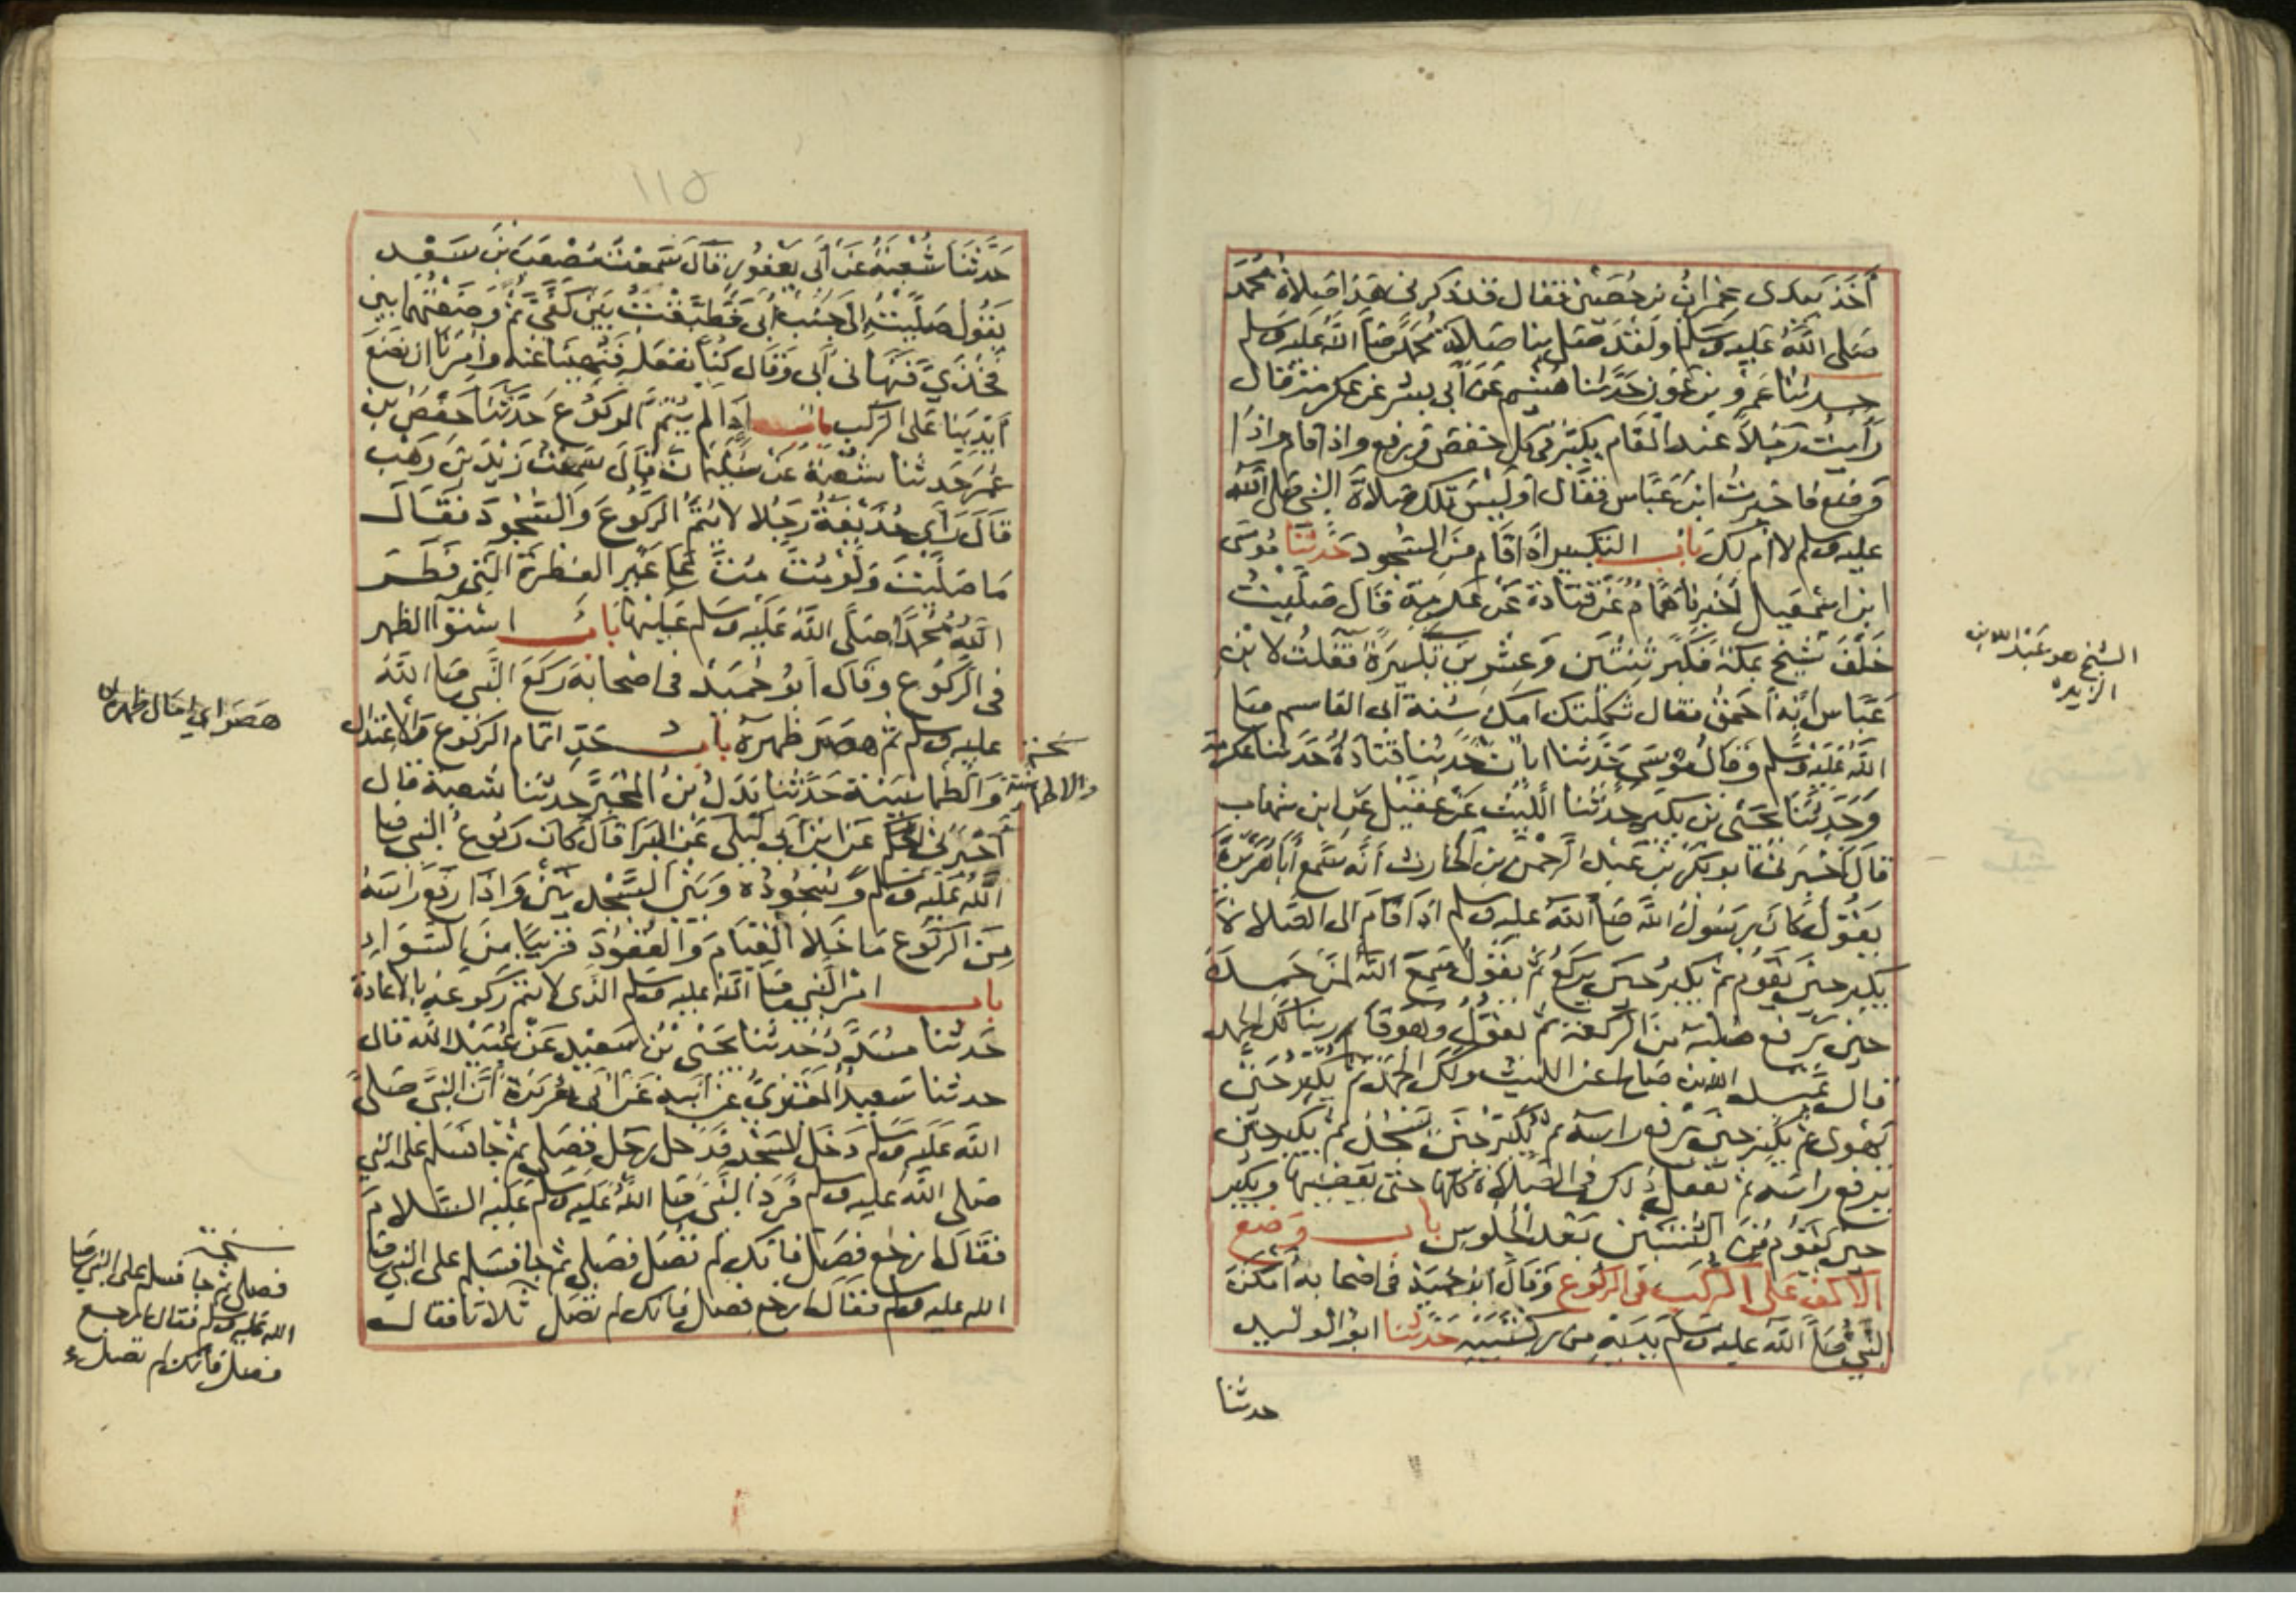 أخذ بيدي عمران بن حصين فقال قد ذكرني هذا صلاة محمد
صلى الله عليه وسلم او لقد صلى بنا صلاة محمد صلى الله عليه وسلم
حدثنا عمرو بن عون حدثنا هشيم عن أبي بشر عن عكرمة قال
رأيت رجلا عند المقام يكبر في كل خفض ورفع واذا قام واذا
وضع فاخبرت ابن عباس فقال أوليس تلك صلاة النبي صلى الله
عليه وسلم لا أم لك باب التكبير اذا قام من السجود حدثنا موسى
ابن اسمعيل أخبرنا همام عن قتادة عن عكرمة قال صليت
خلف شيخ بمكة فكبر ثنتين وعشرين تكبيرة فقلت لابن
عباس إنه أحمق فقال ثكلتك امك سنة ابى القاسم صلى
الله عليه وسلم وقال موسى حدثنا ابان حدثنا قتادة حدثنا عكرمة
وحدثنا يحيى بن بكير حدثنا الليث عن عقيل عن ابن شهاب
قال اخبرني ابو بكر بن عبد الرحمن بن الحارث أنه سمع أبا هريرة
يقول كان رسول الله صلى الله عليه وسلم اذا قام الى الصلاة
يكبر حين يقوم ثم يكبر حين يركع ثم يقول سمع الله لمن حمده
حين يرفع صلبه من الركعة ثم يقول وهو قائم ربنا لك الحمد
قال عبد الله بن صالح عن الليث ولك الحمد ثم يكبر حين
يهوي ثم يكبر حين يرفع راسه ثم يكبر حين يسجد ثم يكبر حين
يرفع راسه ثم يفعل ذلك في الصلاة كلها حتى يقضيها ويكبر
حين يقوم من الثنتين بعد الجلوس باب وضع
الاكف على الركب في الركوع وقال ابو حميد في اصحابه أمكن
النبي صلى الله عليه وسلم يديه من ركبتيه حدثنا ابو الوليد
حدثنا
الشيخ هو عبد الله بن
الزبير
١١٥
حدثنا شعبة عن أبي يعفور قال سمعت مصعب بن سعد
يقول صليت الى جنب أبي فطبقت بين كفي ثم وضعتهما بين
فخذي فنهاني أبي وقال كنا نفعله فنهينا عنه وامرنا ان نضع
أيدينا على الركب باب إذا لم يتم الركوع حدثنا حفص بن
عمر حدثنا شعبة عن سليمان قال سمعت زيد بن وهب
قال رأى حذيفة رجلا لا يتم الركوع والسجود فقال
ما صليت ولو مت مت على غير الفطرة التي فطر
الله محمدا صلى الله عليه وسلم عليها باب استوا الظهر
في الركوع وقال ابو حميد في اصحابه ركع النبي صلى الله
عليه وسلم ثم هصر ظهره باب حد اتمام الركوع والاعتدال
والطمانينة حدثنا بدل بن المحبر حدثنا شعبة قال
أخبرني الحكم عن ابن ابي ليلى عن البرا قال كان ركوع النبي صلى
الله عليه وسلم وسجوده وبين السجدتين واذا رفع راسه
من الركوع ما خلا القيام والقعود قريبا من السواء
باب امر النبي صلى الله عليه وسلم الذي لا يتم ركوعه بالاعادة
حدثنا مسدد حدثنا يحيى بن سعيد عن عبيد الله قال
حدثنا سعيد المقبري عن ابيه عن ابي هريرة أن النبي صلى
الله عليه وسلم دخل المسجد فدخل رجل فصلى ثم جا فسلم على النبي
صلى الله عليه وسلم فرد النبي صلى الله عليه وسلم عليه السلام
فقال ارجع فصل فانك لم تصل فصلى ثم جا فسلم على النبي صلى
الله عليه وسلم فقال ارجع فصل فانك لم تصل ثلاثا فقال
نسخة
والاطمانينة
هصر اي امال ظهره
نسخة
فصلى ثم جا فسلم على النبي صلى
الله عليه وسلم فقال ارجع
فصل فانك لم تصل